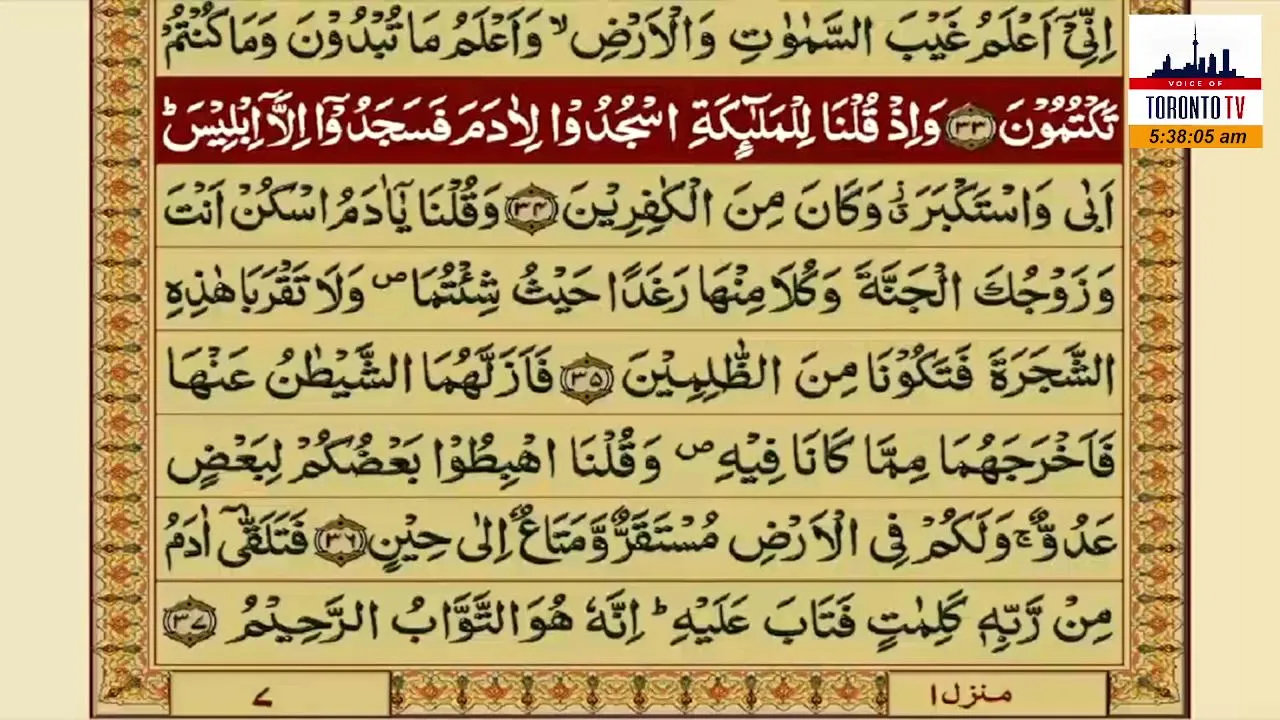 اِنِّیْۤ اَعْلَمُ غَیْبَ السَّمٰوٰتِ وَالْاَرْضِ ۙ وَاَعْلَمُ مَا تُبْدُوْنَ وَمَا كُنْتُمْ
تَكْتُمُوْنَ ﴿۳۳﴾ وَاِذْ قُلْنَا لِلْمَلٰٓىِٕكَةِ اسْجُدُوْا لِاٰدَمَ فَسَجَدُوْۤا اِلَّاۤ اِبْلِیْسَ ؕ
اَبٰی وَاسْتَكْبَرَ ۫ۗ وَكَانَ مِنَ الْكٰفِرِیْنَ ﴿۳۴﴾ وَقُلْنَا یٰۤاٰدَمُ اسْكُنْ اَنْتَ
وَزَوْجُكَ الْجَنَّةَ وَكُلَا مِنْهَا رَغَدًا حَیْثُ شِئْتُمَا ۪ وَلَا تَقْرَبَا هٰذِهِ
الشَّجَرَةَ فَتَكُوْنَا مِنَ الظّٰلِمِیْنَ ﴿۳۵﴾ فَاَزَلَّهُمَا الشَّیْطٰنُ عَنْهَا
فَاَخْرَجَهُمَا مِمَّا كَانَا فِیْهِ ۪ وَقُلْنَا اهْبِطُوْا بَعْضُكُمْ لِبَعْضٍ
عَدُوٌّ ۚ وَلَكُمْ فِی الْاَرْضِ مُسْتَقَرٌّ وَّمَتَاعٌ اِلٰی حِیْنٍ ﴿۳۶﴾ فَتَلَقّٰۤی اٰدَمُ
مِنْ رَّبِّهٖ كَلِمٰتٍ فَتَابَ عَلَیْهِ ؕ اِنَّهٗ هُوَ التَّوَّابُ الرَّحِیْمُ ﴿۳۷﴾
منزل ۱
۷
VOICE OF
TORONTO TV
5:38:05 am